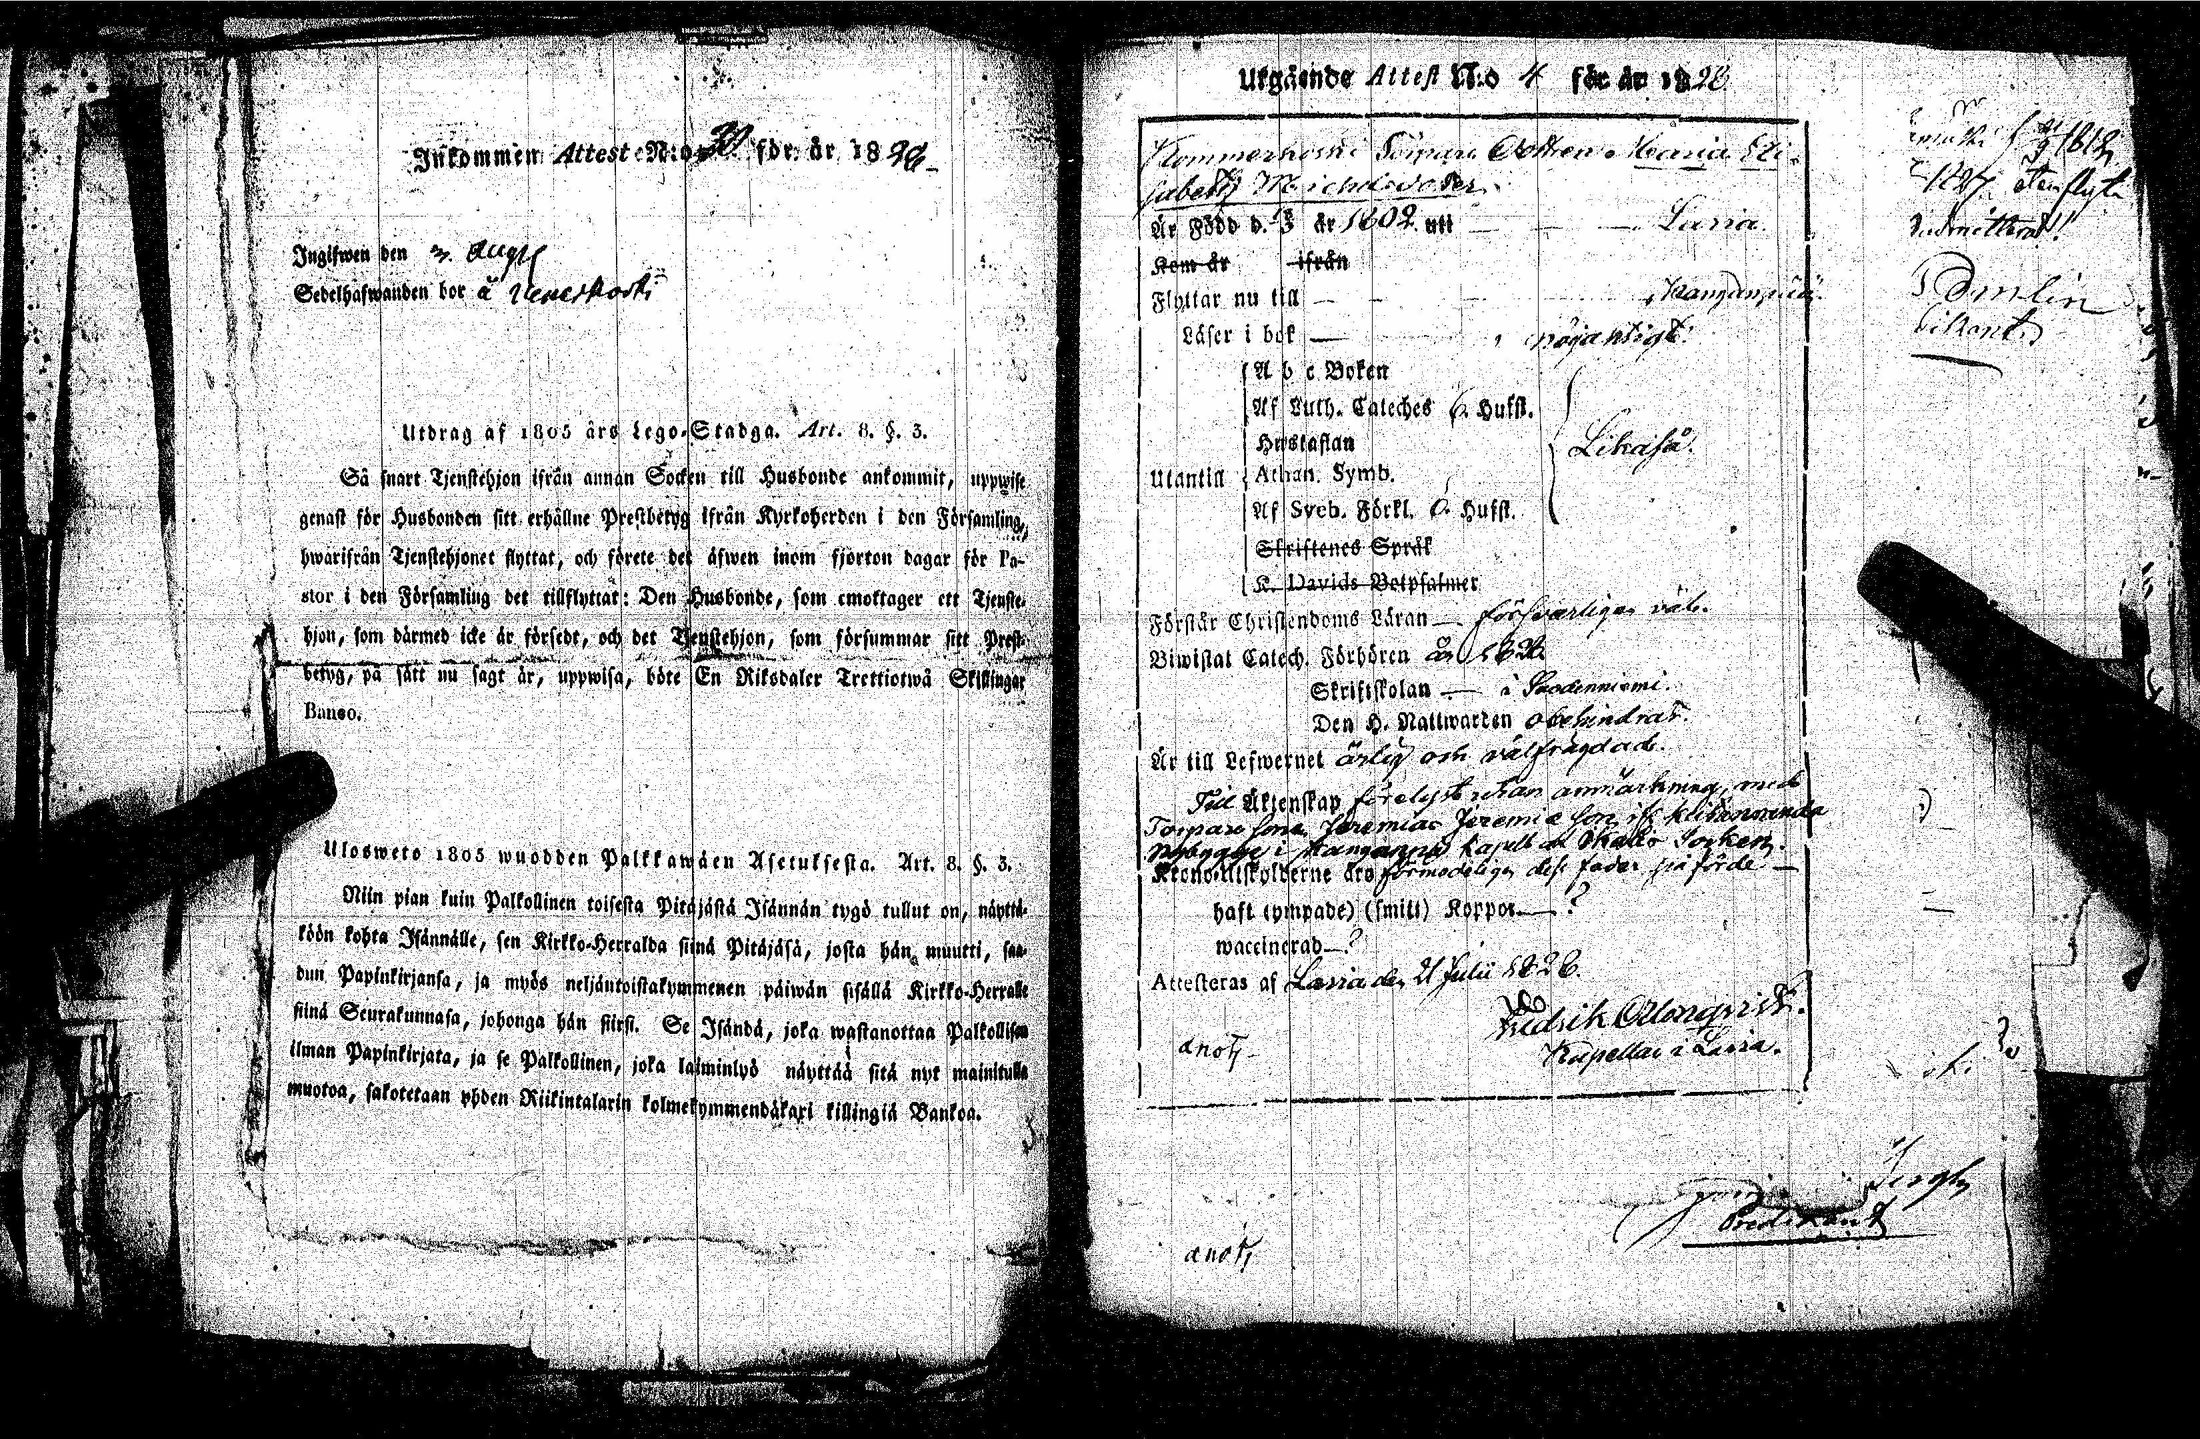 Inkommen Attest N:o 30 för år 1826
Ingifwen den 3. Aug
Sedelhafwanden bor å
Utdrag af 1805 års Lego-Stadga. Art. 8. §. 3.
Så snart Tjenstehjon ifrån annan Socken till Husbonde ankommit, uppwise
genast för Husbonden sitt erhållne Prestbetyg ifrån Kyrkoherden i den Församling,
hwarifrån Tjenstehjonet flyttat, och förete det äfwen inom fjorton dagar för Pa-
stor i den Församling det tillflyttat: Den Husbonde, som emottager ett Tjenste-
hjon, som därmed icke är försedt, och det Tjenstehjon, som försummar sitt Prest-
betyg, på sätt nu sagt är, uppwisa, böte En Riksdaler Trettiotwå Skillingar
Banco.
Ulosweto 1805 wuodden Palkkawäen Asetuksesta. Art. 8. §. 3.
Niin pian kuin Palkollinen toisesta Pitäjästä Isännän tygö tullut on, näyttä-
köön kohta Isännälle, sen Kirkko-Herralda siinä Pitäjäsä, josta hän muutti, saa-
dun Papinkirjansa, ja myös neljäntoistakymmenen päiwän sisällä Kirkko-Herralle
siinä Seurakunnasa, johonga hän siirsi. Se Isändä, joka wastanottaa Palkollisen
ilman Papinkirjata, ja se Palkollinen, joka laiminlyö näyttää sitä nyt mainitulla
muotoa, sakotetaan yhden Riikintalarin kolmekymmendäkaxi killingiä Bankoa.
Utgående Attest N:o 4 för år 1826
Torpare Dottren Maria Eli-
sabeth Michelsdotter
Är Född d. 13/3 år 1802 uti — Lavia
Kom år ifrån
Flyttar nu till — Kanganpää
Läser i bok — nöjaktigt.
A b c Boken
Af Luth. Cateches 6. Hufst.
Hustaflan
Utantill Athan. Symb.
Likaså.
Af Sveb. Förkl. 6. Hufst.
Skriftenes Språk
K. Davids Botpsalmer
Förstår Christendoms Läran — försvarligen väl.
Biwistat Catech. Förhören år 1826
Skriftskolan — i Suodenniemi.
Den H. Nattwarden obehindrat.
Är till Lefwernet ärlig och välfrägdad.
Till Äktenskap förelyst utan anmärkning, med
Torpare sonen Jeremias Jeremiæ son ifr.
nybygge i Kanganpä kapell
Kronoutskylderne äro förmodeligen dess fader påförde —
haft (ympade) (smitt) Koppor — ?
waccinerad — ?
Attesteras af Lavia den 21 Julii 1826.
Fredrik
Kapellan i Lavia.
anoth
1812
1827
Predikant
anoth